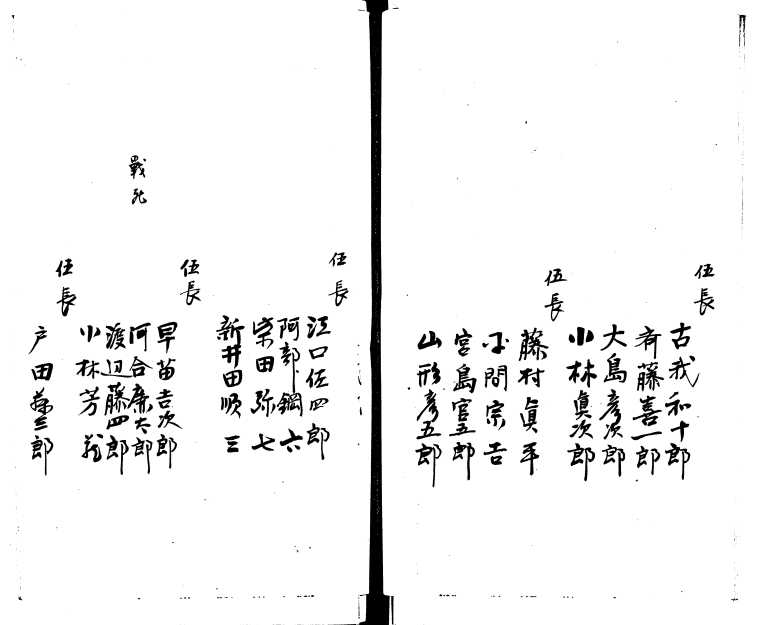 伍長
古我和十郎
斉藤喜一郎
大島彦次郎
小林眞次郎
伍長
藤村眞平
平間宗吉
宮島官五郎
山形彦五郎
伍長
江口伍四郎
阿部鋼六
柴田弥七
新井田順三
伍長
早苗吉次郎
河合廉太郎
戰死
渡辺藤四郎
小林芳蔵
伍長
戸田藤三郎